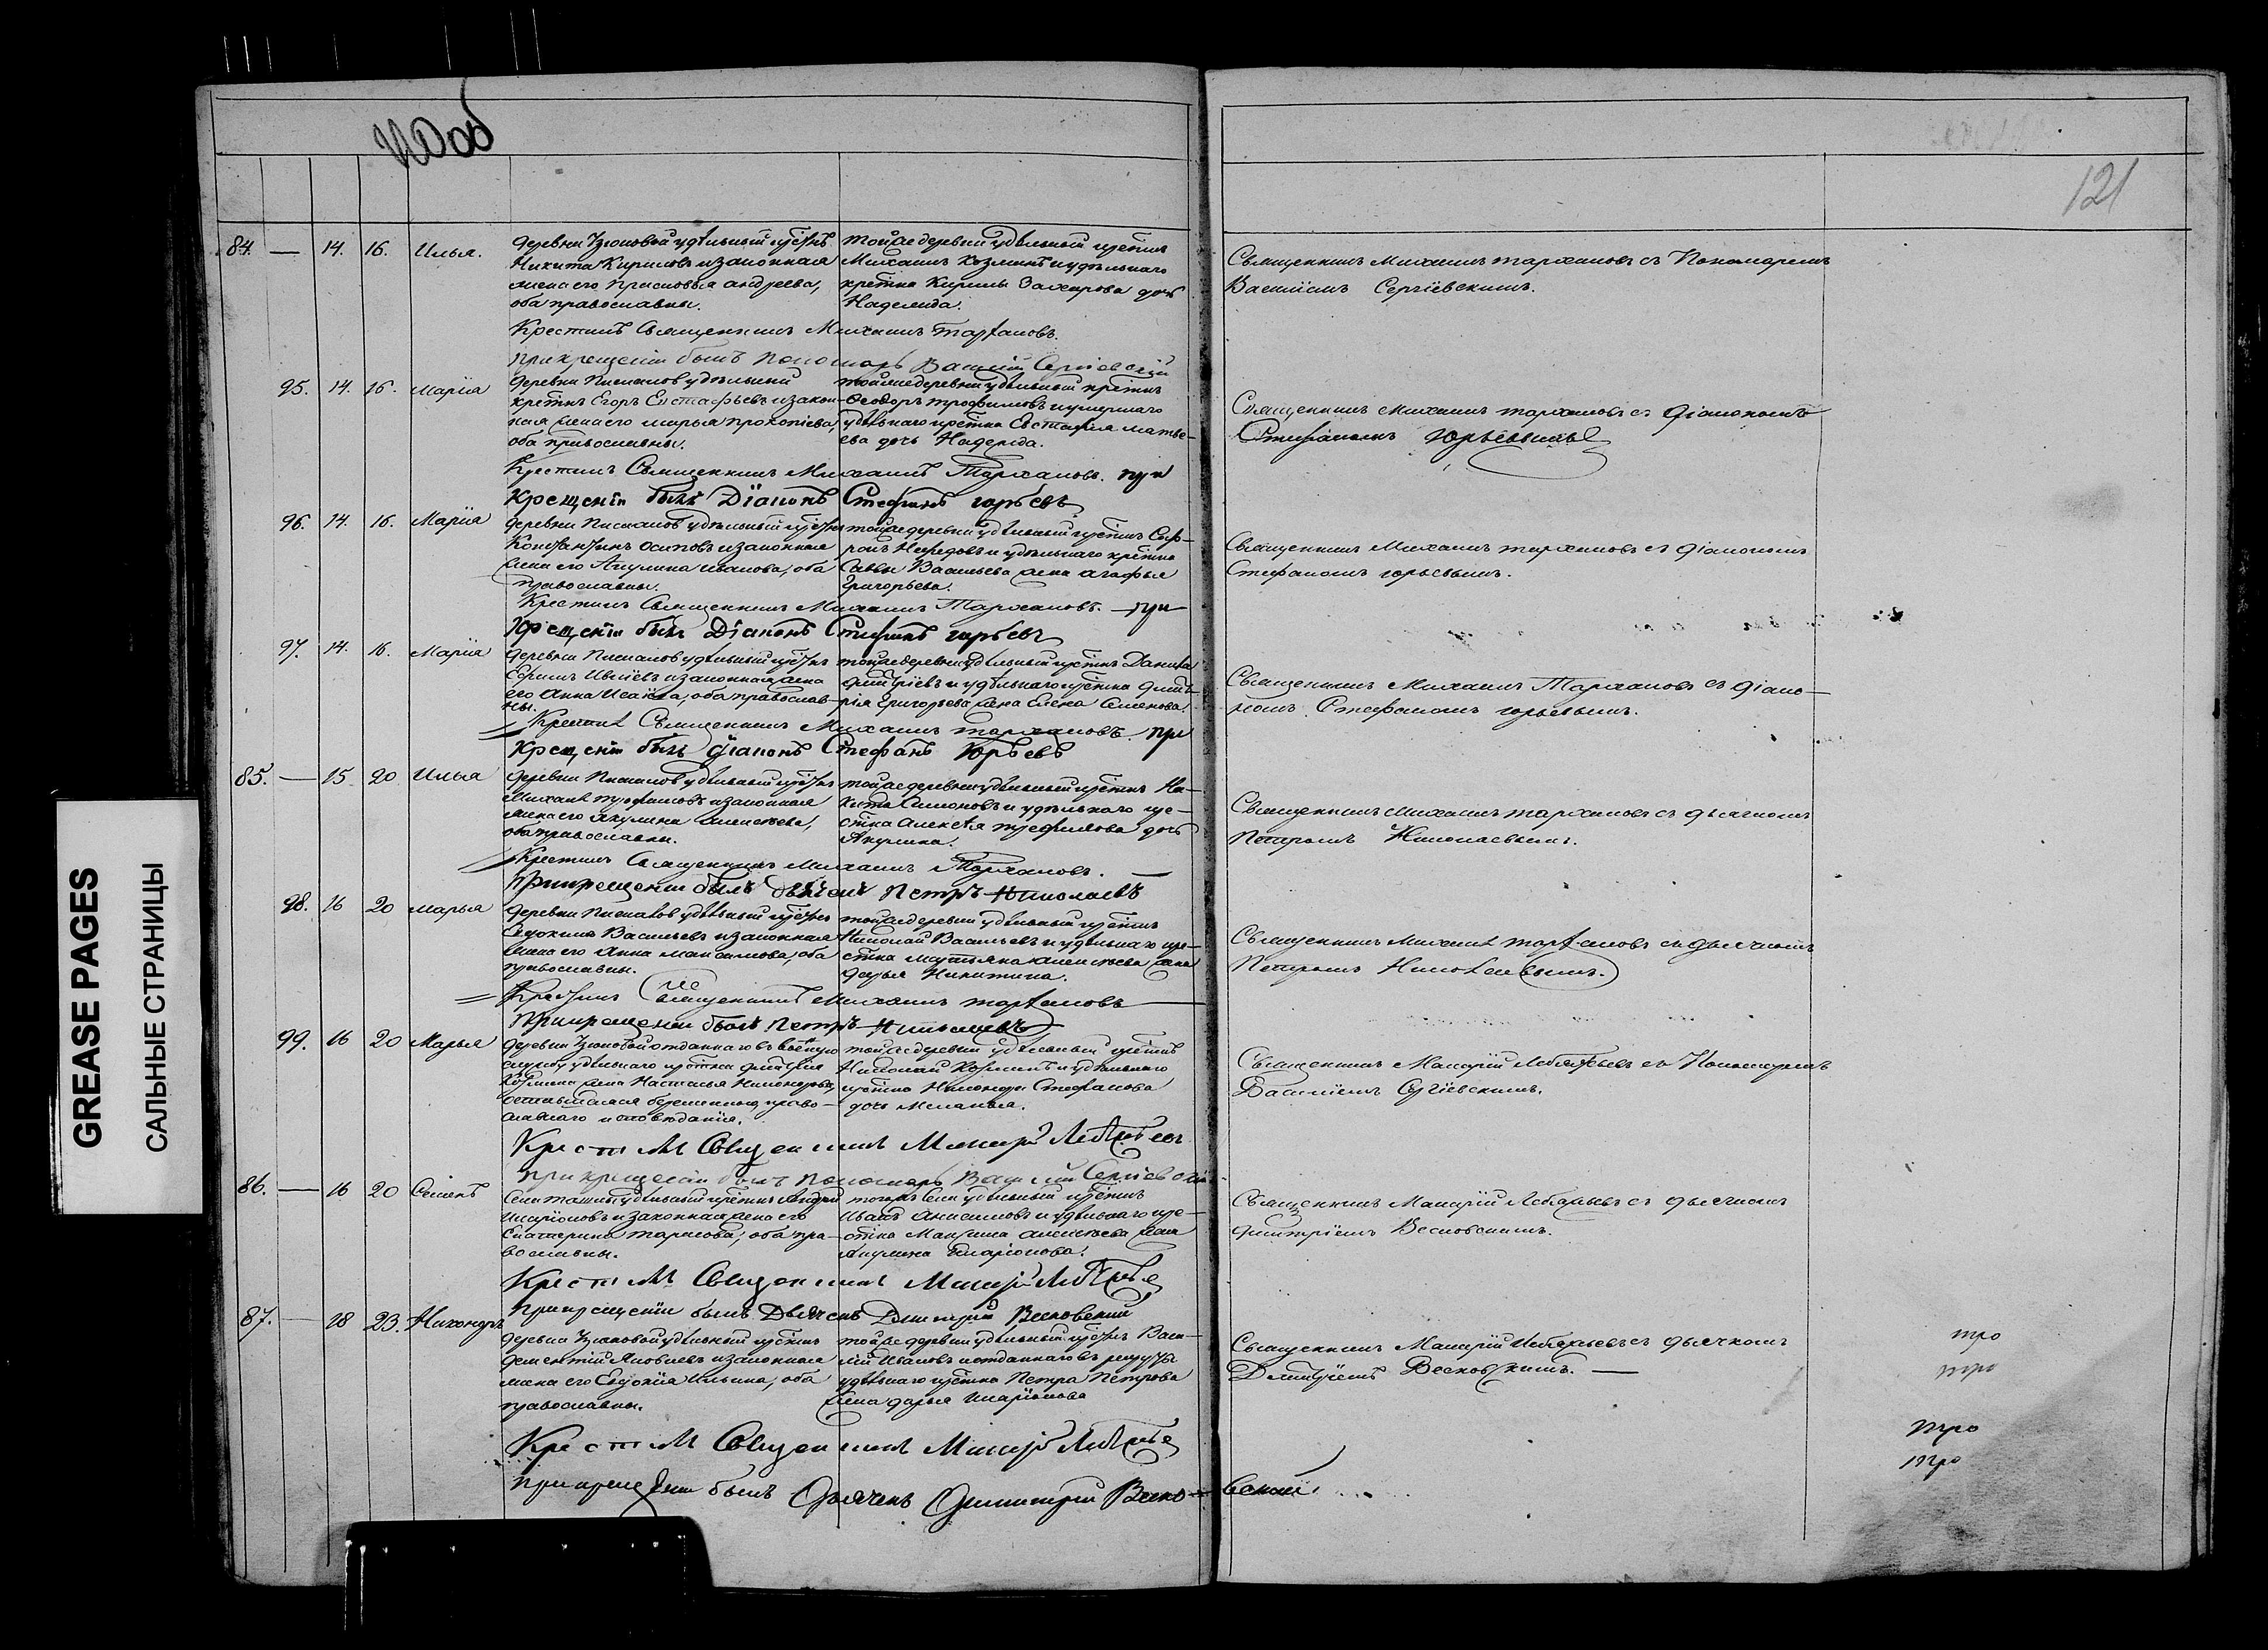 121
84. — 14. 16. Илья.
Деревни Узюковой удѣльный крестнъ
Никита Кириловъ и законная
жена его Прасковья Андреева,
оба православны.
тойже деревни удѣльный крестнъ
Михаилъ Козминъ и удѣльнаго
крестна Кирилы Захарова дочь
Надежда.
Священникъ Михаилъ Тархановъ съ Пономаремъ
Василіемъ Сергіевскимъ.
Крестилъ Священникъ Михаилъ Тархановъ.
При крещеніи былъ Пономарь Василій Сергіевскій
95. 14. 16. Марія
удѣльный
крестнъ Егоръ Евстафьевъ и закон-
ная жена его Марья Прокопіева,
оба православны.
тойже деревни удѣльный крестнъ
Ѳеодоръ Трофимовъ и умершаго
удѣльнаго крестна Евстафія Матве-
ева дочь Надежда.
Священникъ Михаилъ Тархановъ съ Діакономъ
Стефаномъ Юрьевымъ
Крестилъ Священникъ Михаилъ Тархановъ. при
крещеніи былъ Діаконъ Стефанъ Юрьевъ
96. 14. 16. Марія
удѣльный крестнъ
Константинъ Осиповъ и законная
жена его Акулина Иванова, оба
православны.
тойже деревни удѣльный крестнъ Соф-
ронъ Нефедовъ и удѣльнаго крестна
Саввы Васильева жена Агафья
Григорьева.
Священникъ Михаилъ Тархановъ съ Діакономъ
Стефаномъ Юрьевымъ.
Крестилъ Священникъ Михаилъ Тархановъ. — при
крещеніи былъ Діаконъ Стефанъ Юрьевъ
97. 14. 16. Марія
удѣльный крестнъ
и законная жена
его Анна Исаева, оба православ-
ны.
тойже деревни удѣльный крестнъ Данила
Дмитріевъ и удѣльнаго крестна Дмит-
рія Григорьева жена Елена Семенова.
Священникъ Михаилъ Тархановъ съ Діако-
номъ Стефаномъ Юрьевымъ.
Крестилъ Священникъ Михаилъ Тархановъ. При
крещеніи былъ Діаконъ Стефанъ Юрьевъ
85. — 15 20 Илья
удѣльный крестнъ
Михаилъ Трофимовъ и законная
жена его Акулина Алексѣева,
оба православны.
тойже деревни удѣльный крестнъ Ни-
кита Симоновъ и удѣльнаго кре-
стна Алексѣя Трефилова дочь
Акулина.
Священникъ Михаилъ Тархановъ съ дьячкомъ
Петромъ Николаевымъ.
Крестилъ Священникъ Михаилъ Тархановъ. —
При крещеніи былъ дьячекъ Петръ Николаевъ
98. 16 20 Марья
удѣльный крестнъ
Евдокимъ Васильевъ и законная
жена его Анна Максимова, оба
православны.
тойже деревни удѣльный крестнъ
Николай Васильевъ и удѣльнаго кре-
стна Мартьяна Алексѣева жена
Дарья Никитина.
Священникъ Михаилъ Тархановъ съ дьячкомъ
Петромъ Николаевымъ.
Крестилъ Священникъ Михаилъ Тархановъ —
При крещеніи былъ Петръ Николаевъ
99. 16 20 Марья
Деревни Узюковой отданнаго въ военную
службу удѣльнаго крестна Дмитрія
Козмина жена Настасья Никонорова,
оставшаяся беременною, право-
славнаго исповѣданія.
тойже деревни удѣльный крестнъ
Николай Козминъ и удѣльнаго
крестна Никонора Стефанова
дочь Меланья.
Священникъ Макарій Лебяжьевъ съ Пономаремъ
Василіемъ Сергіевскимъ.
Крестилъ Священникъ Макарій
При крещеніи былъ Пономарь Василій Сергіевскій
86. — 16 20 Семенъ
удѣльный крестнъ Андрей
Иларіоновъ и законная жена его
Екатерина Тарасова, оба пра-
вославны.
тогоже села удѣльный крестнъ
Иванъ Анисимовъ и удѣльнаго кре-
стна Максима Алексѣева жена
Акулина Иларіонова.
Священникъ Макарій съ дьячкомъ
Димитріемъ Весновскимъ.
Крестилъ Священникъ Макарій
При крещеніи былъ Дьячекъ Димитрій Весновскій
87. — 18 23. Никоноръ
Деревни Узюковой удѣльный крестнъ
Дементій Яковлевъ и законная
жена его Евдокія Ильина, оба
православны.
тойже деревни удѣльный крестнъ Васи-
лій Ивановъ и отданнаго въ рекруты
удѣльнаго крестна Петра Петрова
жена Дарья Иларіонова
Священникъ Макарій съ дьячкомъ
Димитріемъ Весновскимъ. —
Крестилъ Священникъ Макарій
При крещеніи былъ Дьячекъ Димитрій Весновскій.
GREASE PAGES
САЛЬНЫЕ СТРАНИЦЫ